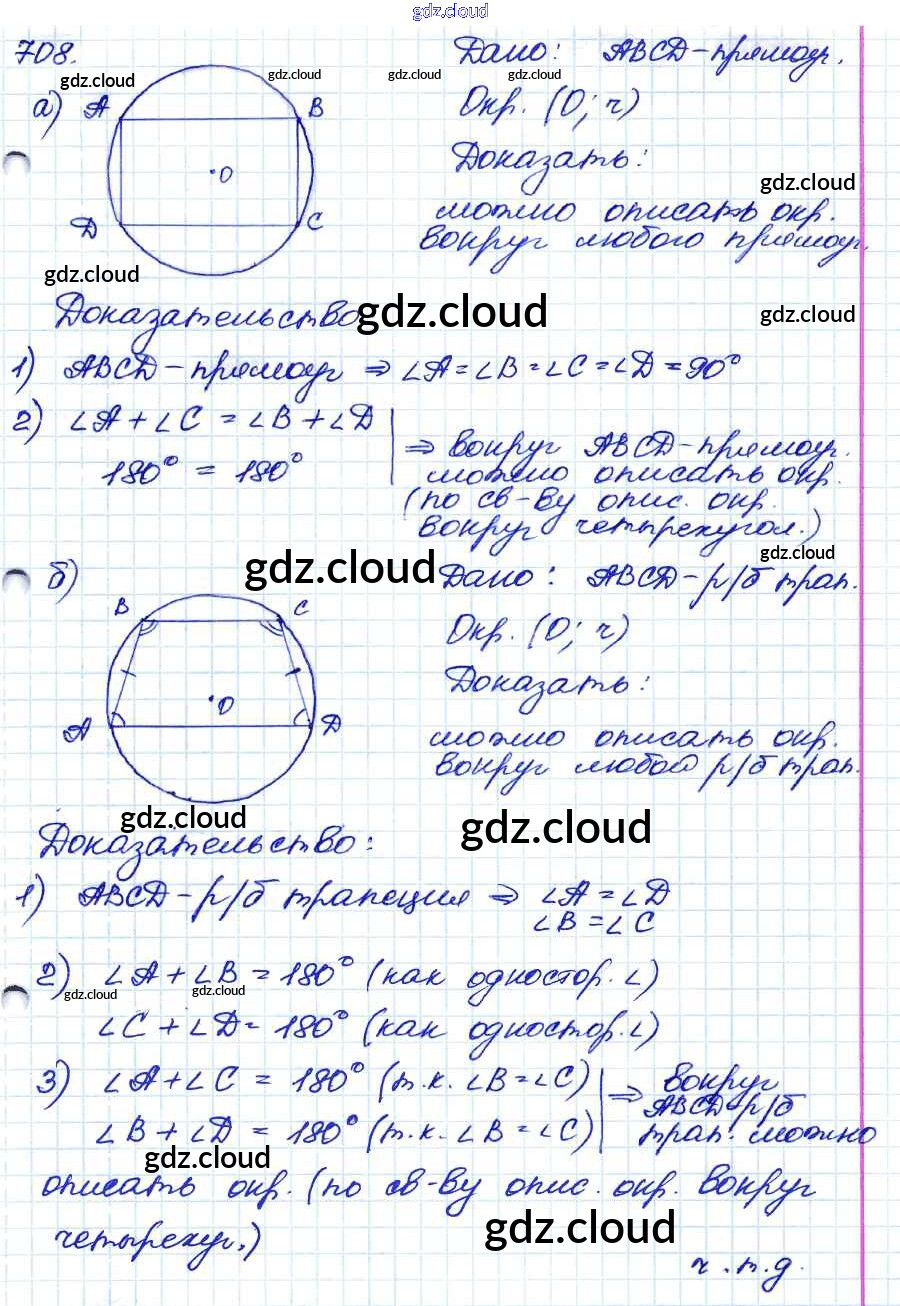 gdz.cloud
708.
gdz.cloud
gdz.cloud
gdz.cloud
Дано: ABCD-прямоуг.
а)
A
B
Окр. (O; r)
O
Доказать:
gdz.cloud
D
C
можно описать окр.
вокруг любого прямоуг.
gdz.cloud
Доказательство
gdz.cloud
gdz.cloud
1) ABCD-прямоуг ⇒ ∠A=∠B=∠C=∠D=90°
2) ∠A+∠C=∠B+∠D
180°=180°
⇒ вокруг ABCD-прямоуг.
можно описать окр.
(по св-ву опис. окр.
вокруг четырехугол.)
gdz.cloud
gdz.cloud
б)
Дано: ABCD-р/б трап.
B
C
Окр. (O; r)
O
Доказать:
A
D
можно описать окр.
вокруг любой р/б трап.
gdz.cloud
gdz.cloud
Доказательство:
1) ABCD-р/б трапеция ⇒ ∠A=∠D
∠B=∠C
2) ∠A+∠B=180° (как одностор.∠)
gdz.cloud
gdz.cloud
∠C+∠D=180° (как одностор.∠)
3) ∠A+∠C=180° (т.к. ∠B=∠C)
∠B+∠D=180° (т.к. ∠B=∠C)
⇒ вокруг
ABCD-р/б
трап. можно
gdz.cloud
описать окр. (по св-ву опис. окр. вокруг
четырехуг.)
gdz.cloud
ч.т.д.